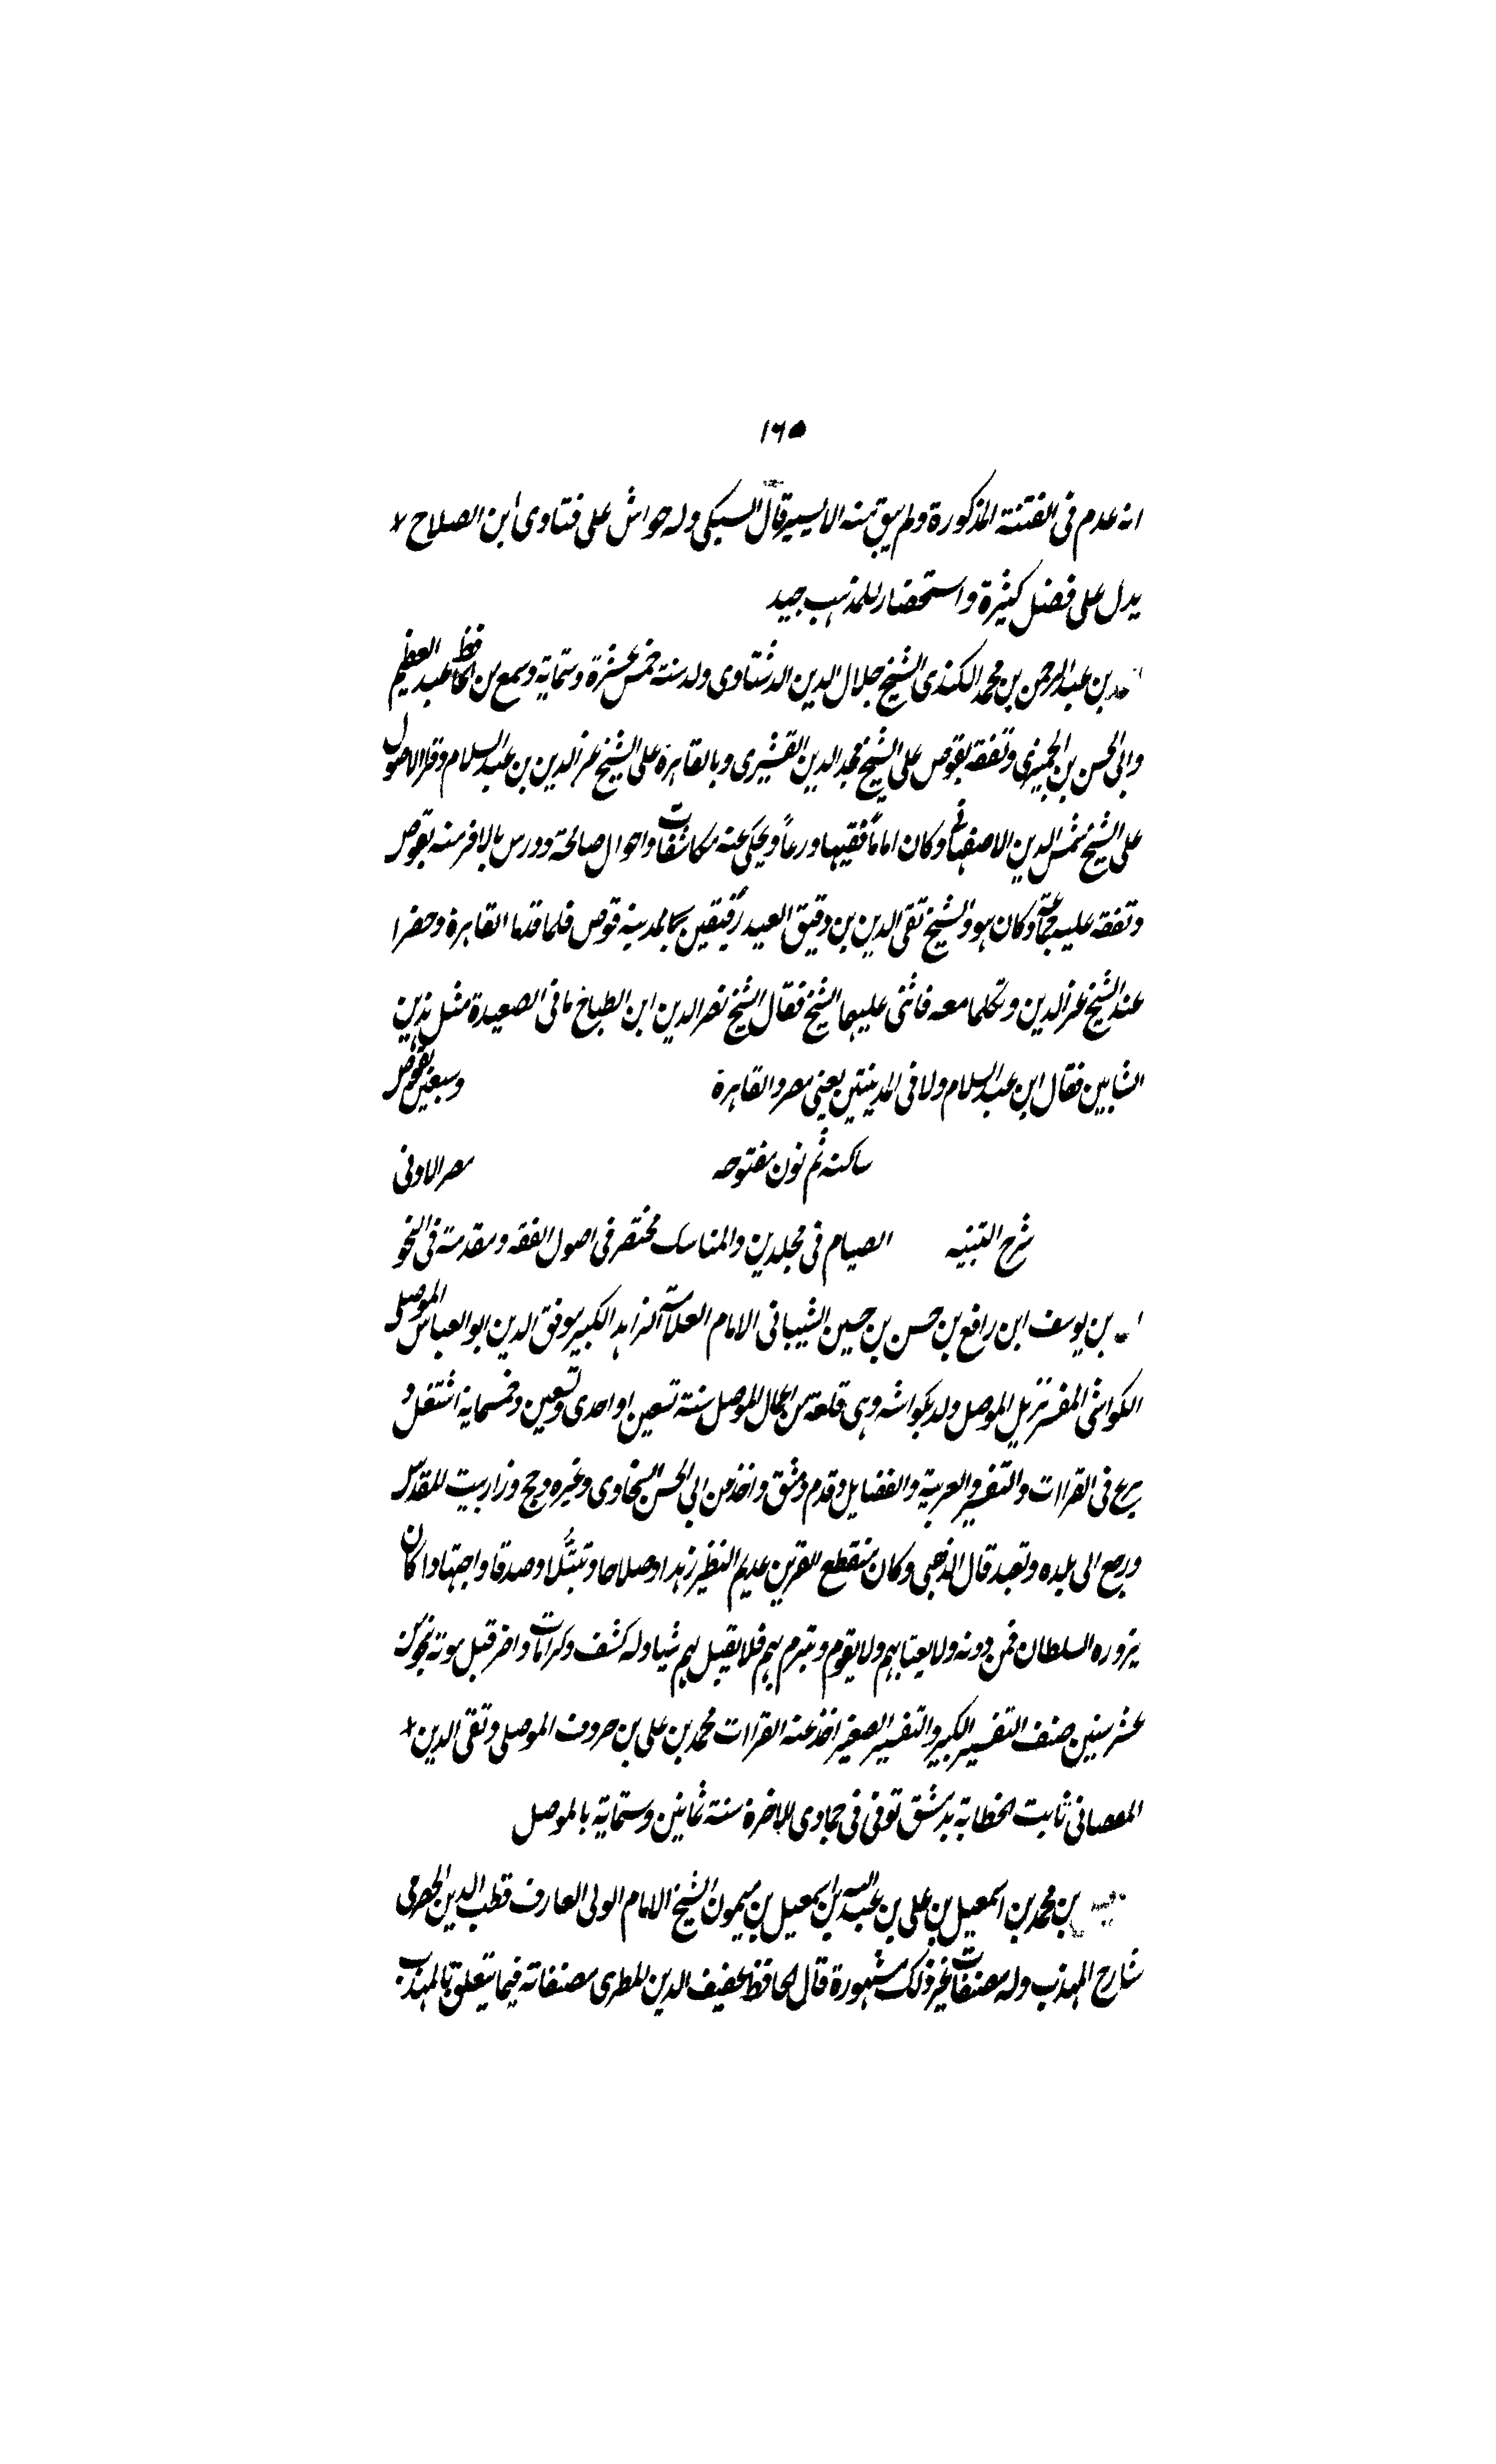 ١٦٥
انه عدم فى الفتنة المذكورة ولم يبق منه الا ليسير قال السبكى وله حواش على فتاوى ابن الصلاح
يدل على فضل كثيرة واستحضار للمذهب جيد
بن عبد الرحمن بن محمد الكندى الشيخ جلال الدين الدشناوى ولد سنة خمس عشرة وستماية وسمع من الحافظ عبد العظيم
وابى الحسن بن الجميزى وتفقه بقوص على الشيخ مجد الدين القشيرى وبالقاهرة على الشيخ عز الدين بن عبد السلام وقرا الاصول
على الشيخ شمس الدين الاصفهانى وكان اماماً فقيها ورعاً ويحكى عنه مكاشفات واحوال صالحة ودرس بالافرمنه بقوص
وتفقه عليه جماعة وكان هو والشيخ تقى الدين بن دقيق العيد رفيقين بالمدينة قوص فلما قدما القاهرة وحضرا
عند الشيخ عز الدين وتكلما معه فاثنى عليهما الشيخ فقال الشيخ نصر الدين ابن الطباخ ما فى الصعيدة مثل هذين
الشابين فقال ابن عبد السلام ولا فى المدينتين يعنى مصر والقاهرة وسبعين بقوص
ساكنه ثم نون مفتوحه مصر الادنى
شرح التنبيه الصيام فى مجلدين والمناسك مختصر فى اصول الفقه ومقدمة فى النحو
بن يوسف ابن رافع بن حسن بن حسين الشيبانى الامام العلامة الزاهد الكبير موفق الدين ابو العباس الموصلى
الكواشى المفسر نزيل الموصل ولد بكواشه وهى قلعة من اعمال الموصل سنة تسعين او احدى وتسعين وخمسماية اشتغل و
برع فى القراات والتفسير والعربية والفضايل وقدم دمشق واخذ من ابى الحسن السخاوى وغيره وحج وزار بيت المقدس
ورجع الى بلده وتعبد قال الذهبى وكان منقطع القرين عديم النظير زهدا وصلاحا وتبتلا وصدقا واجتهادا كان
يزوره السلطان فمن دونه ولا يعبا بهم ولا يقوم ويتبرم بهم فلا يقبل لهم شيا وله كشف وكرامات واضر قبل موته بنحو من
عشر سنين صنف التفسير الكبير والتفسير الصغير اخذ عنه القراات محمد بن على بن خروف الموصلى وتقى الدين
المقصانى نايب الخطابة بدمشق توفى فى جمادى الاخرة سنة ثمانين وستماية بالموصل
بن محمد بن اسمعيل بن على بن عبد الله بن اسمعيل بن ميمون الشيخ الامام الولى العارف قطب الدين الحضرمى
شارح المهذب وله مصنفات غير ذلك مشهورة قال الحافظ عفيف الدين المطرى مصنفاته فيما يتعلق بالمهذب